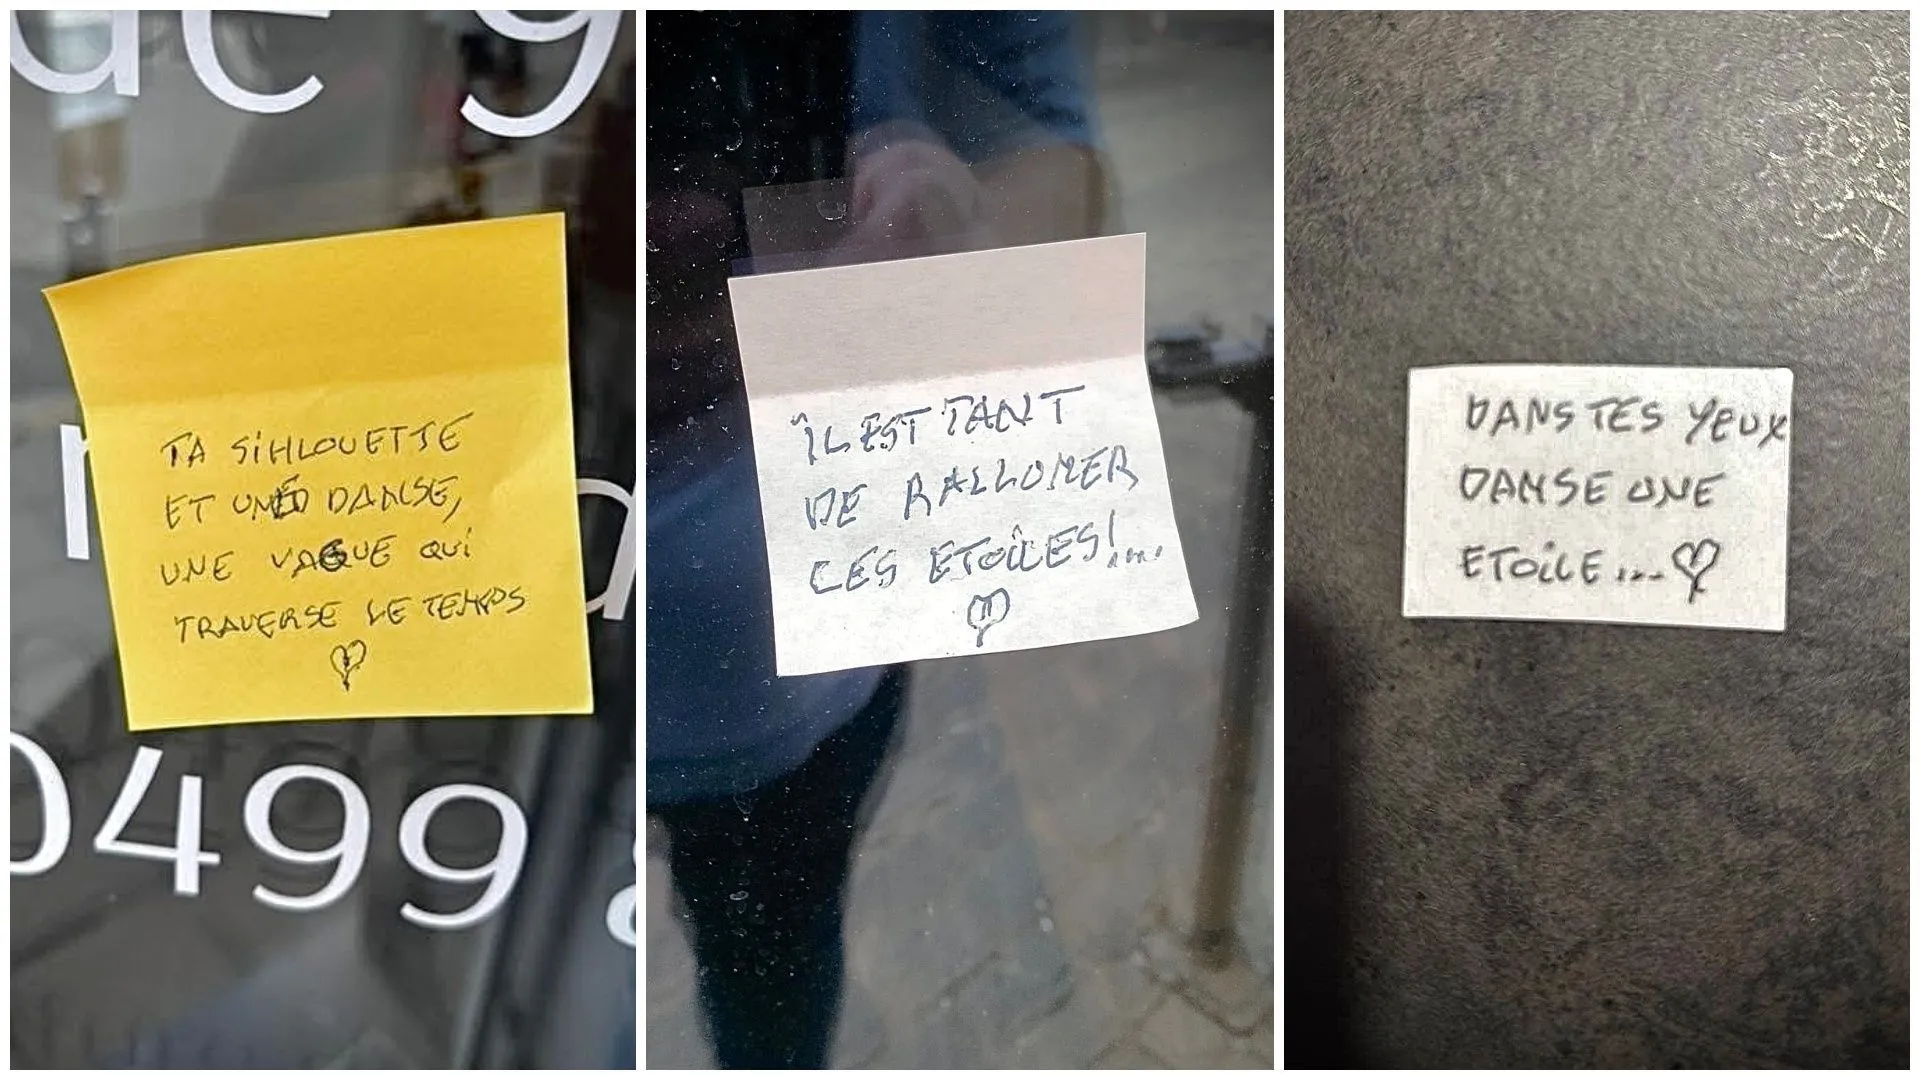 de 9
TA SIHLOUETTE
ET UNE DANSE,
UNE VAGUE QUI
TRAVERSE LE TEMPS
0499
ÎL EST TANT
DE RALLUMER
CES ETOÎLES!...
DANS TES YEUX
DANSE UNE
ETOILE...